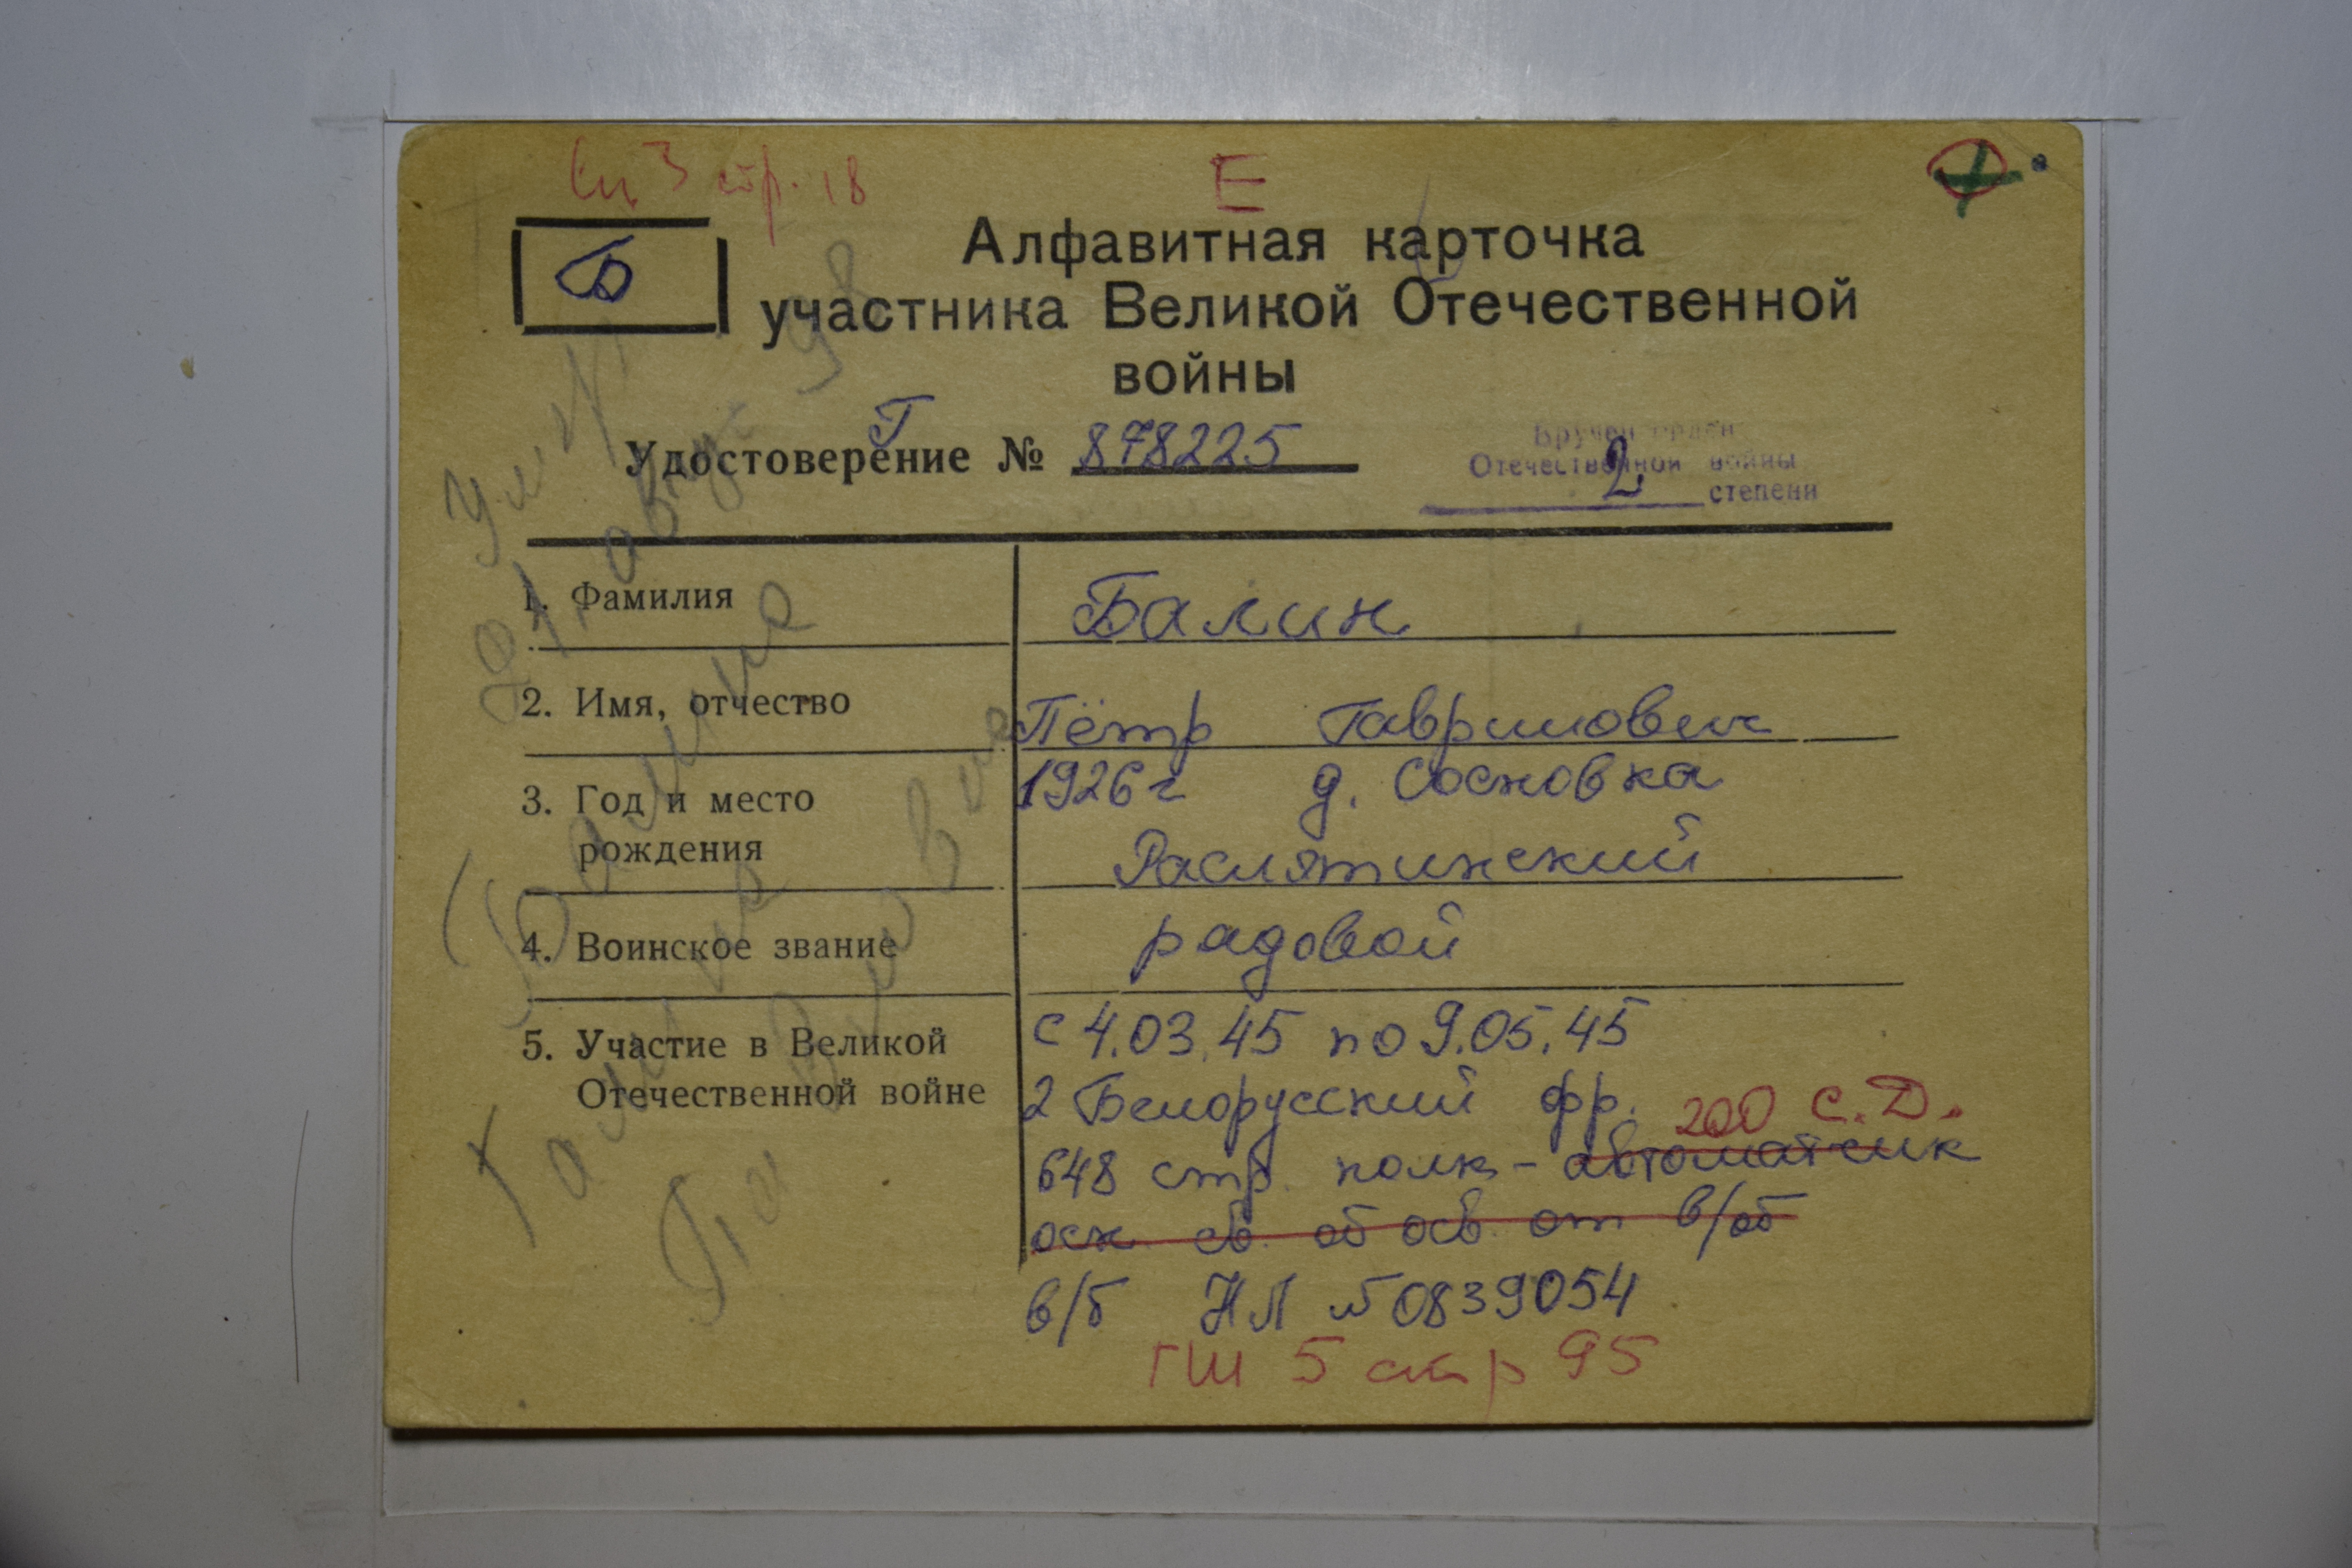 Сп 3 стр. 18
Е
Б
Алфавитная карточка
участника Великой Отечественной
войны
Удостоверение № Г 878225
Вручен орден
Отечественной войны
2 степени
1. Фамилия Балин
2. Имя, отчество Пётр Гаврилович
3. Год и место 1926 г д. Сосновка
рождения Раслятинский
4. Воинское звание радовой
5. Участие в Великой с 4.03.45 по 9.05.45
Отечественной войне 2 Белорусский фр.
200 С.Д.
648 стр. полк - автоматчик
осн св. об осв. от в/об
в/б НЛ № 0839054
ГШ 5 стр 95
Балина
Галина
Павловна